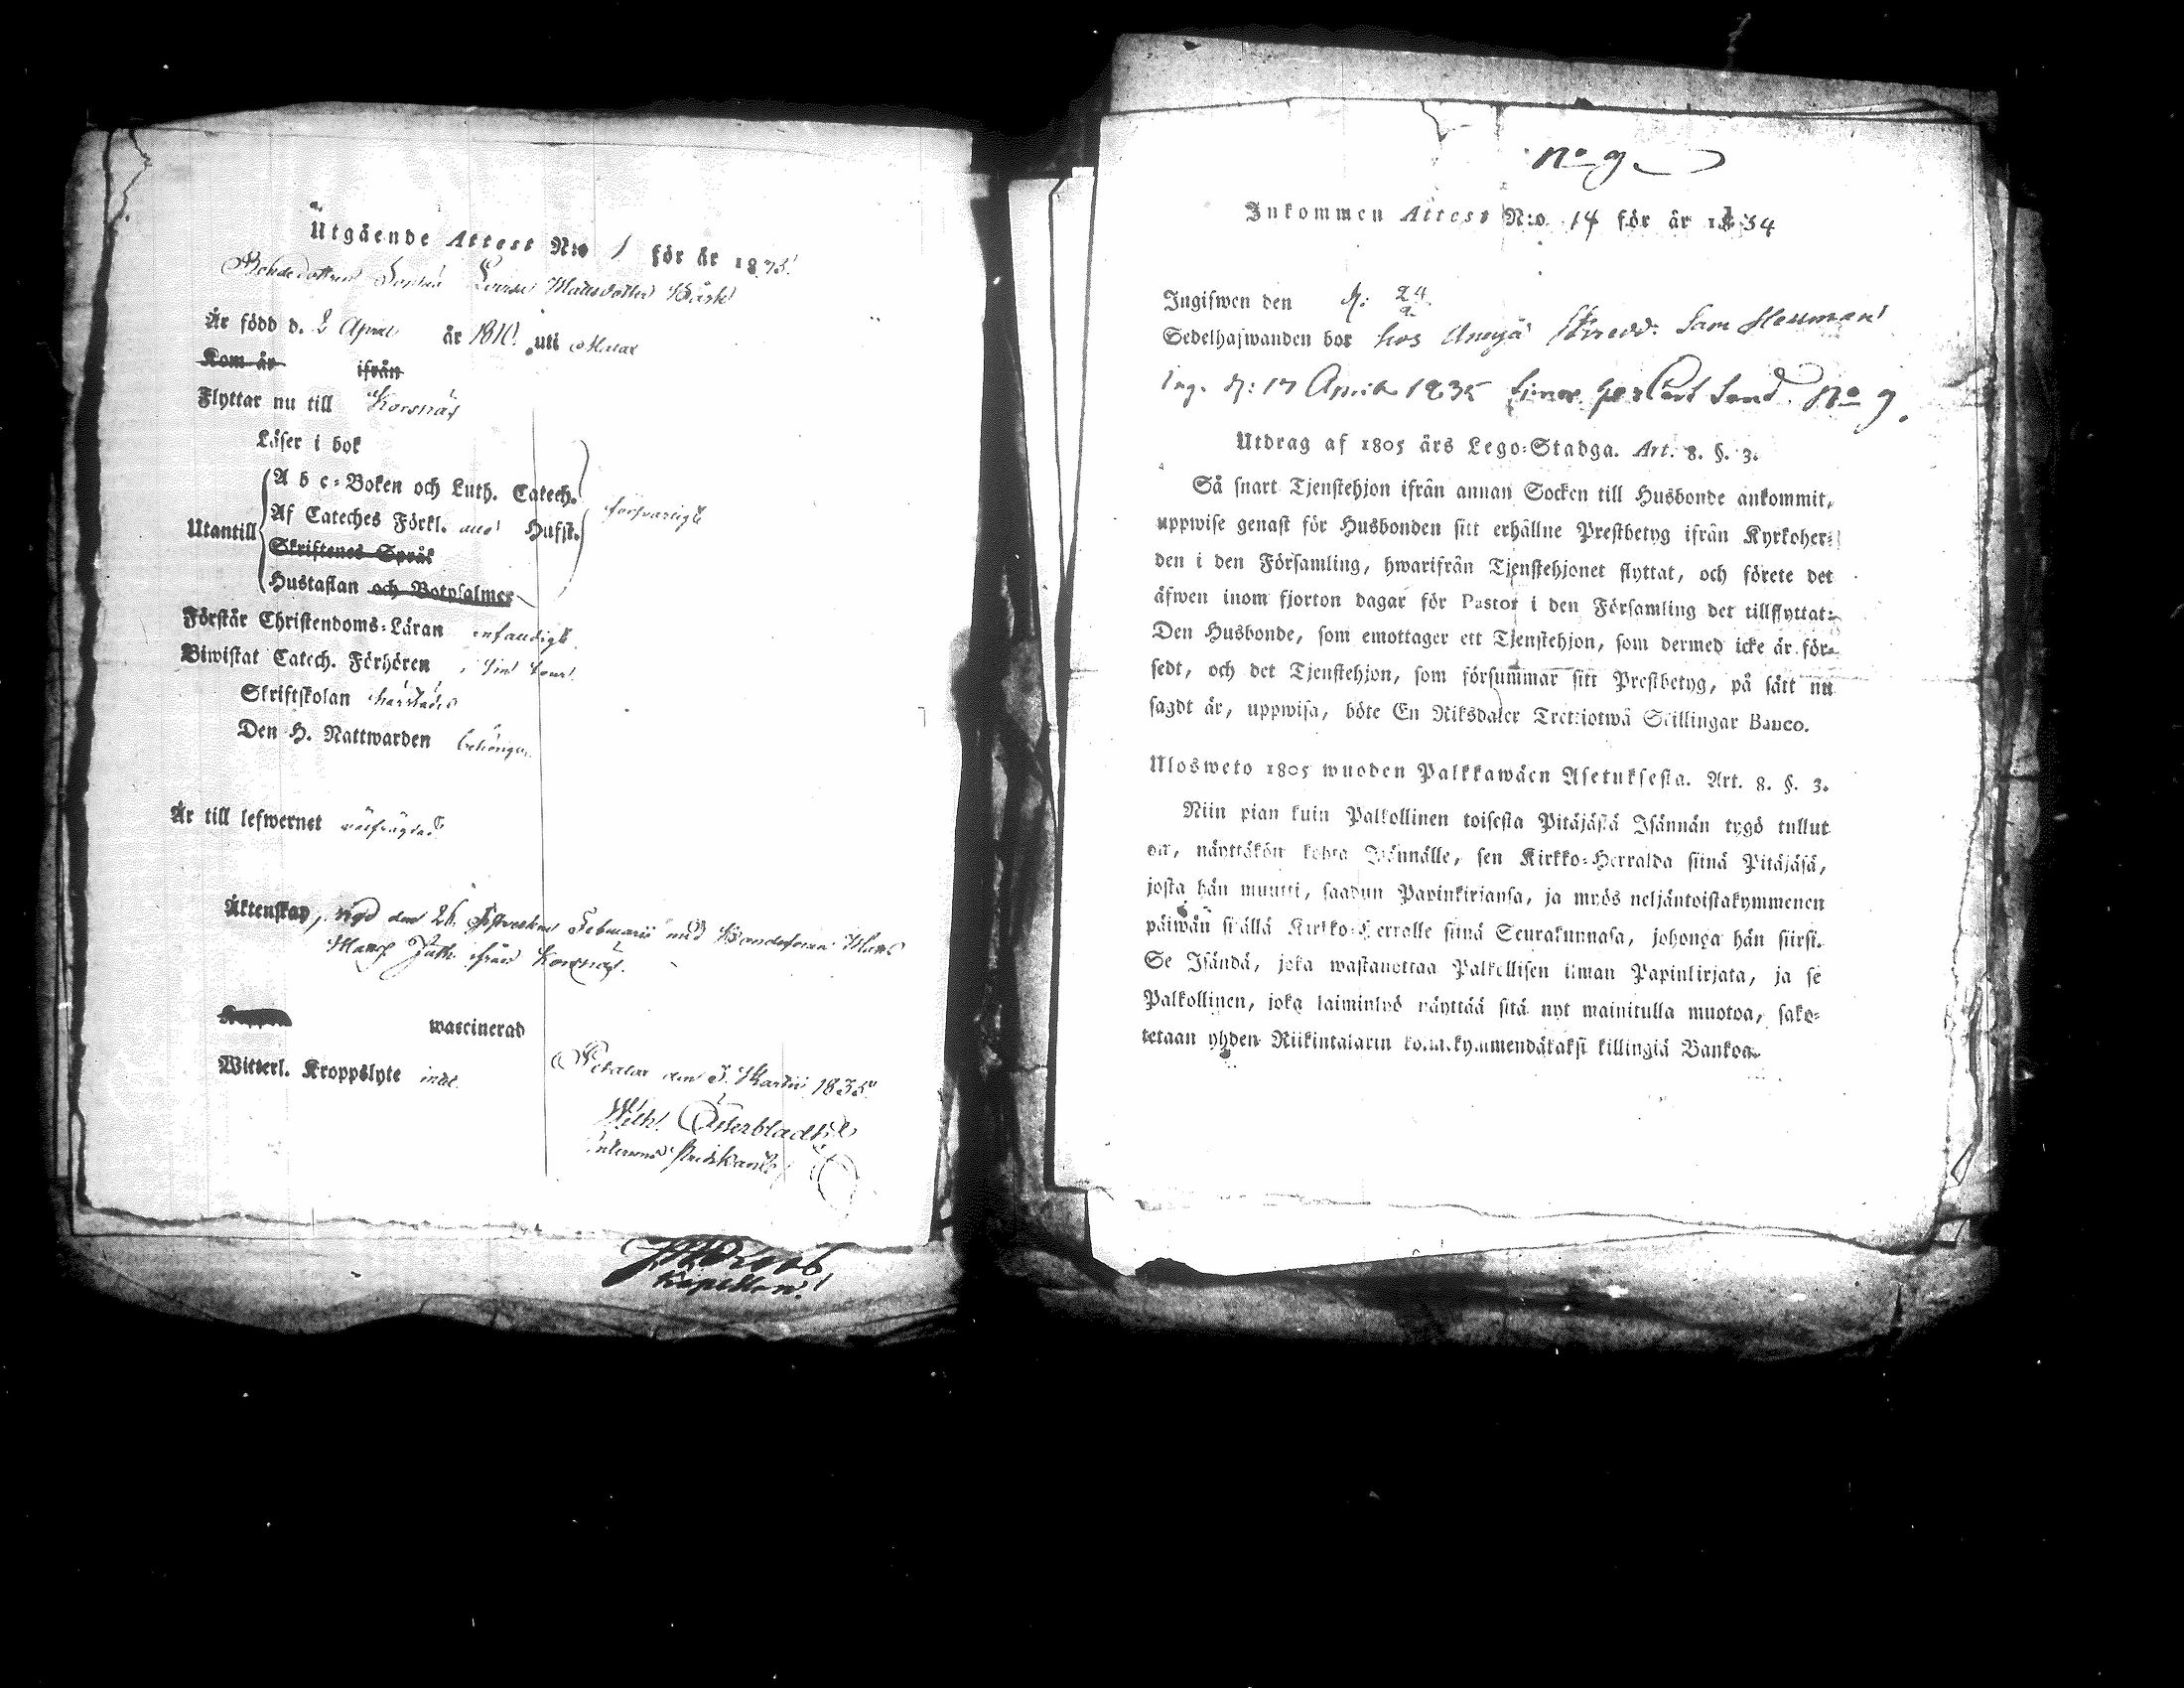 Utgående Attest N:o 1 för år 1835
Bondedottren Sophia Lovisa Mattsdotter Bäsk
Är född d. 2 April år 1810 uti
Kom år ifrån
Flyttar nu till Korsnäs
Läser i bok
Utantill
A b c-Boken och Luth. Catech.
Af Cateches Förkl. Husst.
försvarligt
Skriftenes Språk
Hustaflan och Botpsalmer
Förstår Christendoms-Läran enfaldigt
Biwistat Catech. Förhören
Skriftskolan
Den H. Nattwarden behörigen
Är till lefwernet välfrägdad
Äktenskap, vigd den 26 sistvekne Februarii med Bondesonen Hans
Hansς ifrån Korsnäs.
waccinerad
Witterl. Kroppslyte intet
Petalax den 3 Martii 1835
Wilh. Österbladh
Predikant
Kapellan
No 9
Inkommen Attest N:o 14 för år 1834
Ingifwen den d: 24
Sedelhafwanden bor hos Sam
Ing. d: 17 April 1835 No 9.
Utdrag af 1805 års Lego-Stadga. Art. 8. §. 3.
Så snart Tjenstehjon ifrån annan Socken till Husbonde ankommit,
uppwise genast för Husbonden sitt erhållne Prestbetyg ifrån Kyrkoher-
den i den Församling, hwarifrån Tjenstehjonet flyttat, och förete det
äfwen inom fjorton dagar för Pastor i den Församling det tillflyttat:
Den Husbonde, som emottager ett Tjenstehjon, som dermed icke är för-
sedt, och det Tjenstehjon, som försummar sitt Prestbetyg, på sätt nu
sagdt är, uppwisa, böte En Riksdaler Trettiotwå Skillingar Banco.
Ulosweto 1805 wuoden Palkkawäen Asetuksesta. Art. 8. §. 3.
Niin pian kuin Palkollinen toisesta Pitäjästä Isännän tygö tullut
on, näyttäkön kohta Isännälle, sen Kirkko-Herralda siinä Pitäjäsä,
josta hän muutti, saadun Papinkirjansa, ja myös neljäntoistakymmenen
päiwän sisällä Kirkko-Herralle siinä Seurakunnasa, johonga hän siirsi.
Se Isändä, joka wastanottaa Palkollisen ilman Papinkirjata, ja se
Palkollinen, joka laiminlyö näyttää sitä nyt mainitulla muotoa, sako-
tetaan yhden Riikintalarin kolmekymmendäkaksi killingiä Bankoa.